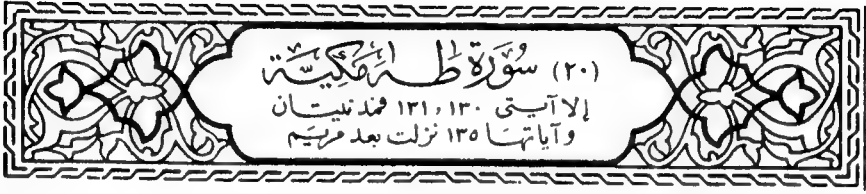 (٢٠) سُورَة طٰهٰ مَكِّيَّة
إلا آيتى ١٣٠ و ١٣١ فمدنيتان
وآياتها ١٣٥ نزلت بعد مريم